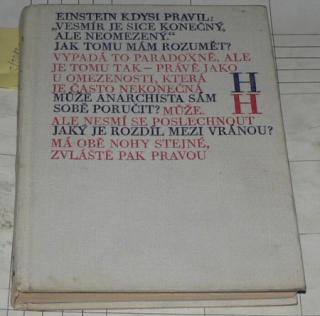 EINSTEIN KDYSI PRAVIL:
„VESMÍR JE SICE KONEČNÝ,
ALE NEOMEZENÝ.“
JAK TOMU MÁM ROZUMĚT?
VYPADÁ TO PARADOXNĚ, ALE
JE TOMU TAK – PRÁVĚ JAKO
U OMEZENOSTI, KTERÁ
JE ČASTO NEKONEČNÁ
MŮŽE ANARCHISTA SÁM
SOBĚ PORUČIT? MŮŽE.
ALE NESMÍ SE POSLECHNOUT
JAKÝ JE ROZDÍL MEZI VRÁNOU?
MÁ OBĚ NOHY STEJNÉ,
ZVLÁŠTĚ PAK PRAVOU
H
H